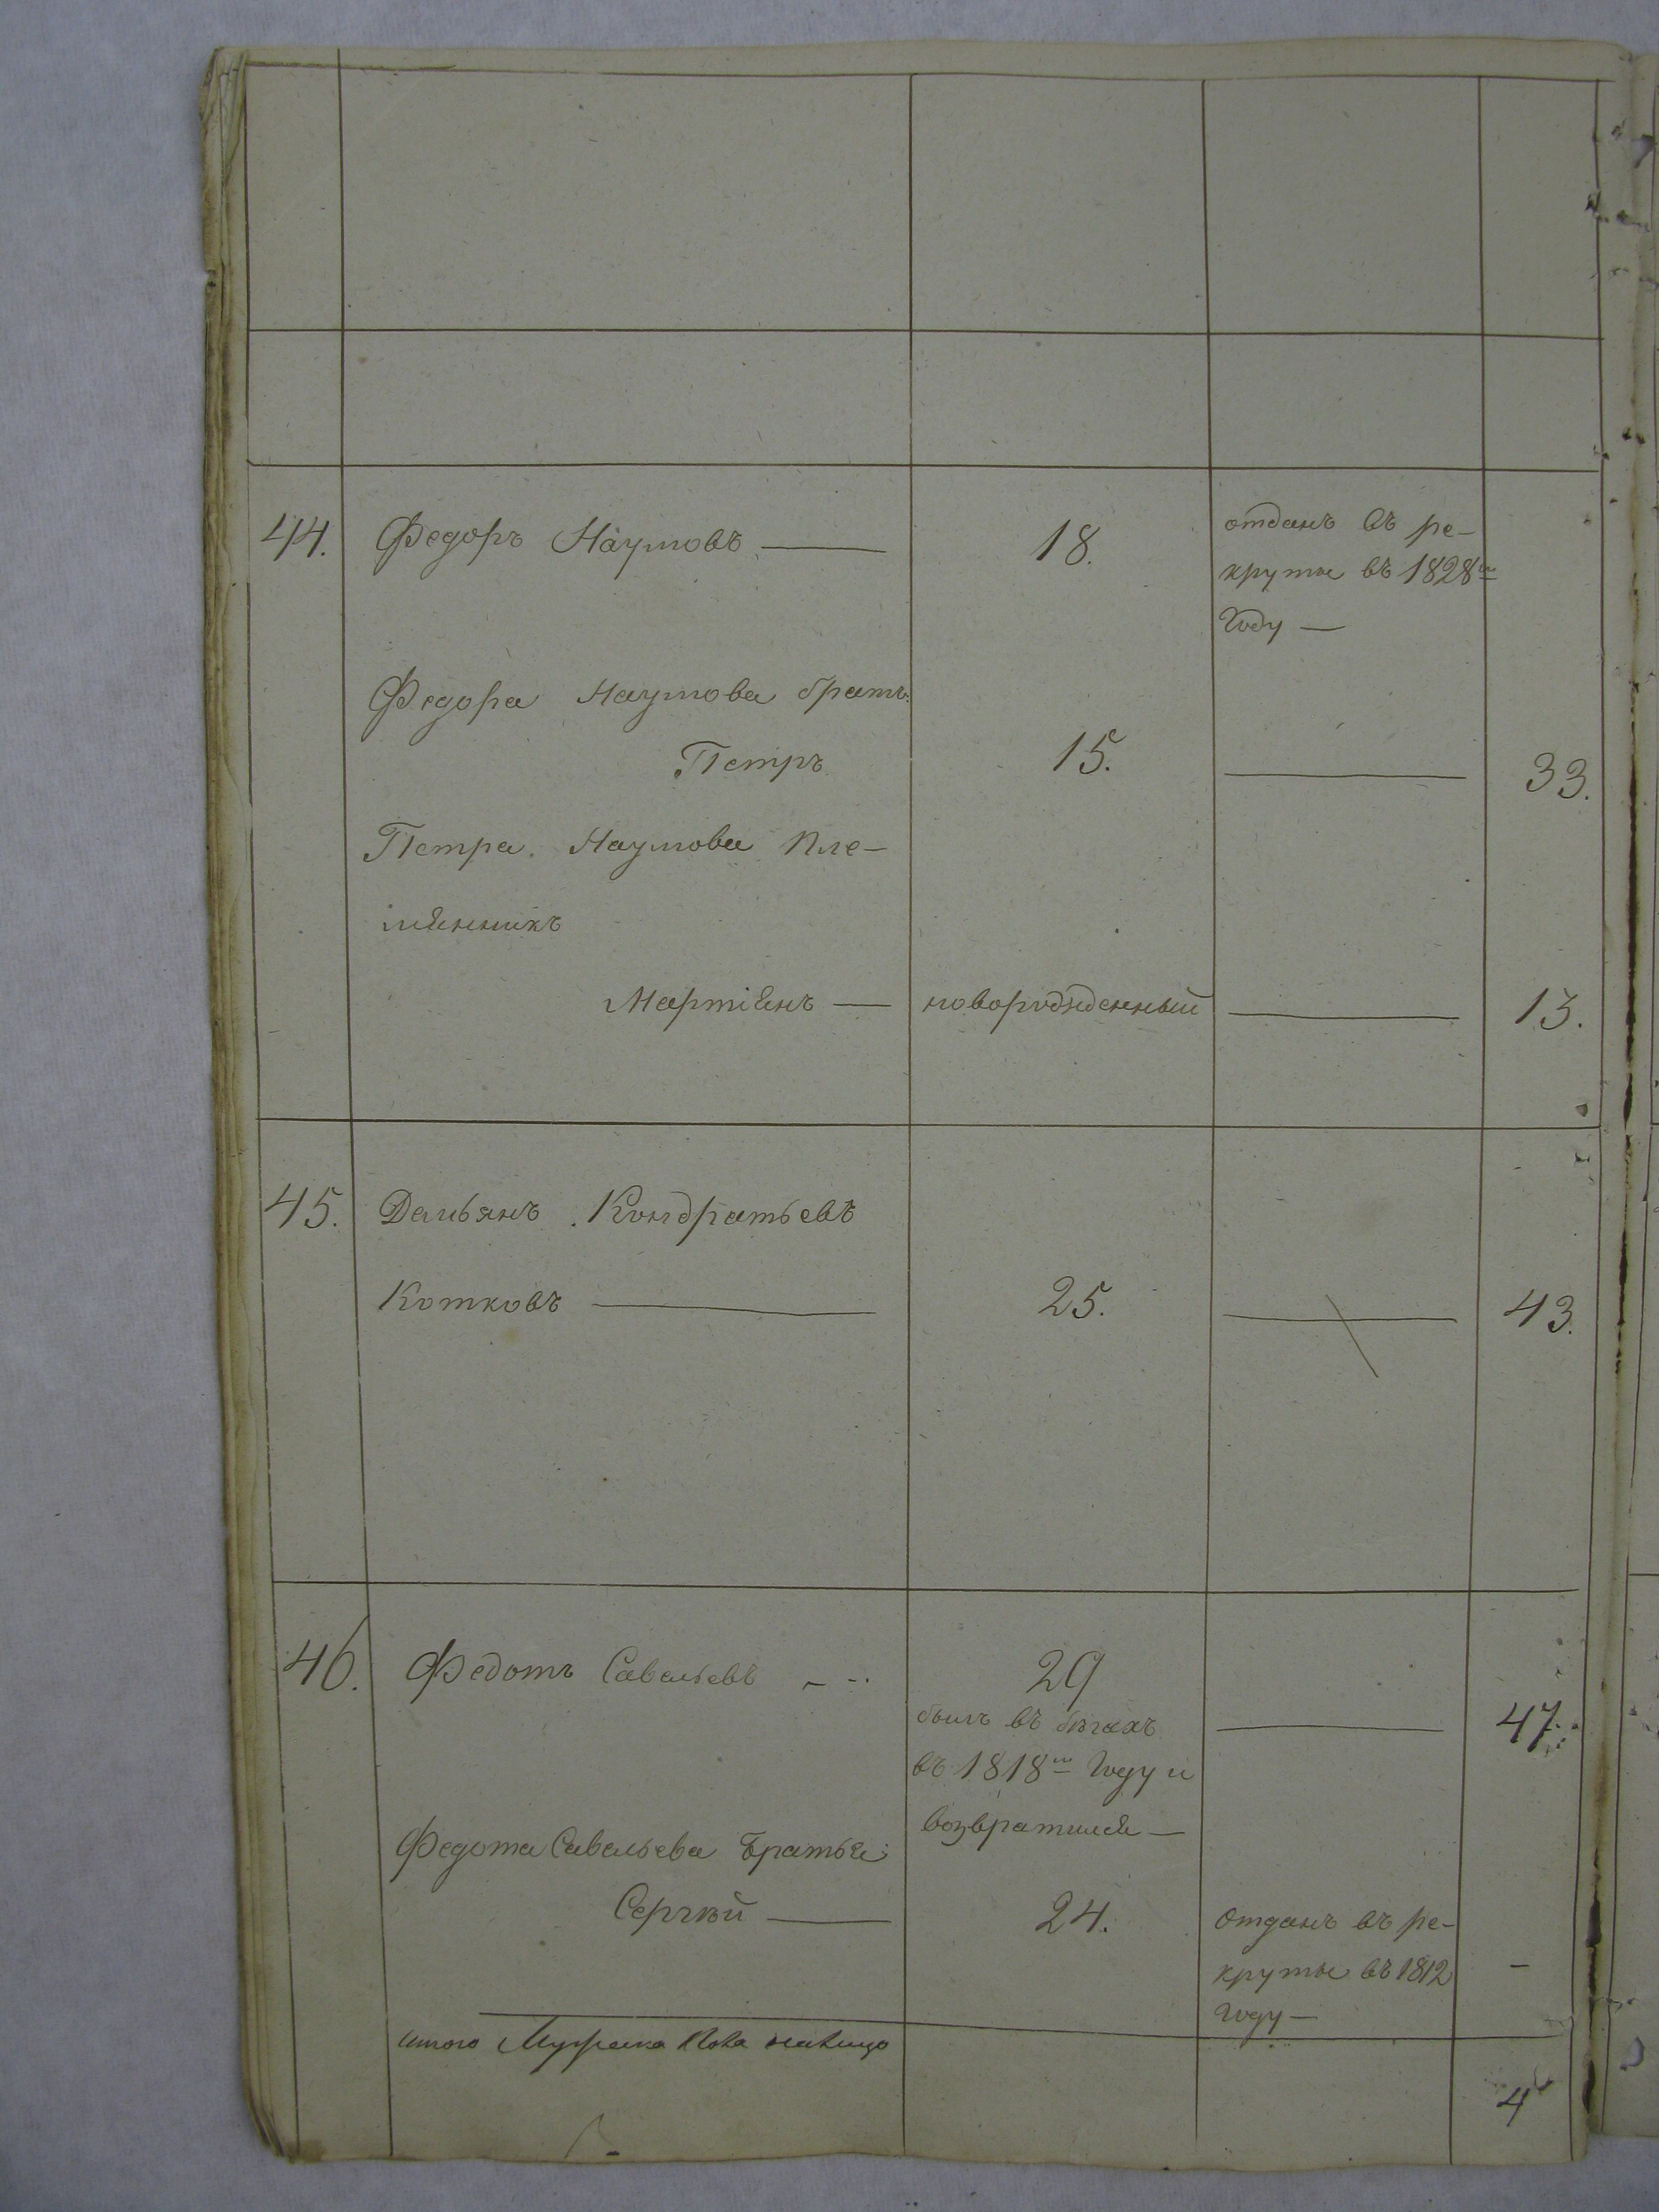 44. Федоръ Наумовъ — 18. отданъ въ ре-
круты въ 1828м
году —
Федора Наумова братъ
Петръ 15. — 33.
Петра Наумова пле-
мянникъ
Мартiянъ — новорожденный — 13.
45. Демьянъ Кондратьевъ
Котковъ — 25. — 43.
46. Федотъ Савельевъ 29 — 47.
былъ въ бѣгахъ
въ 1818м году и
возвратился —
Федота Савельева братья
Сергѣй — 24. отданъ въ ре-
круты въ 1812 -
году —
итого Мужеска пола налицо
4